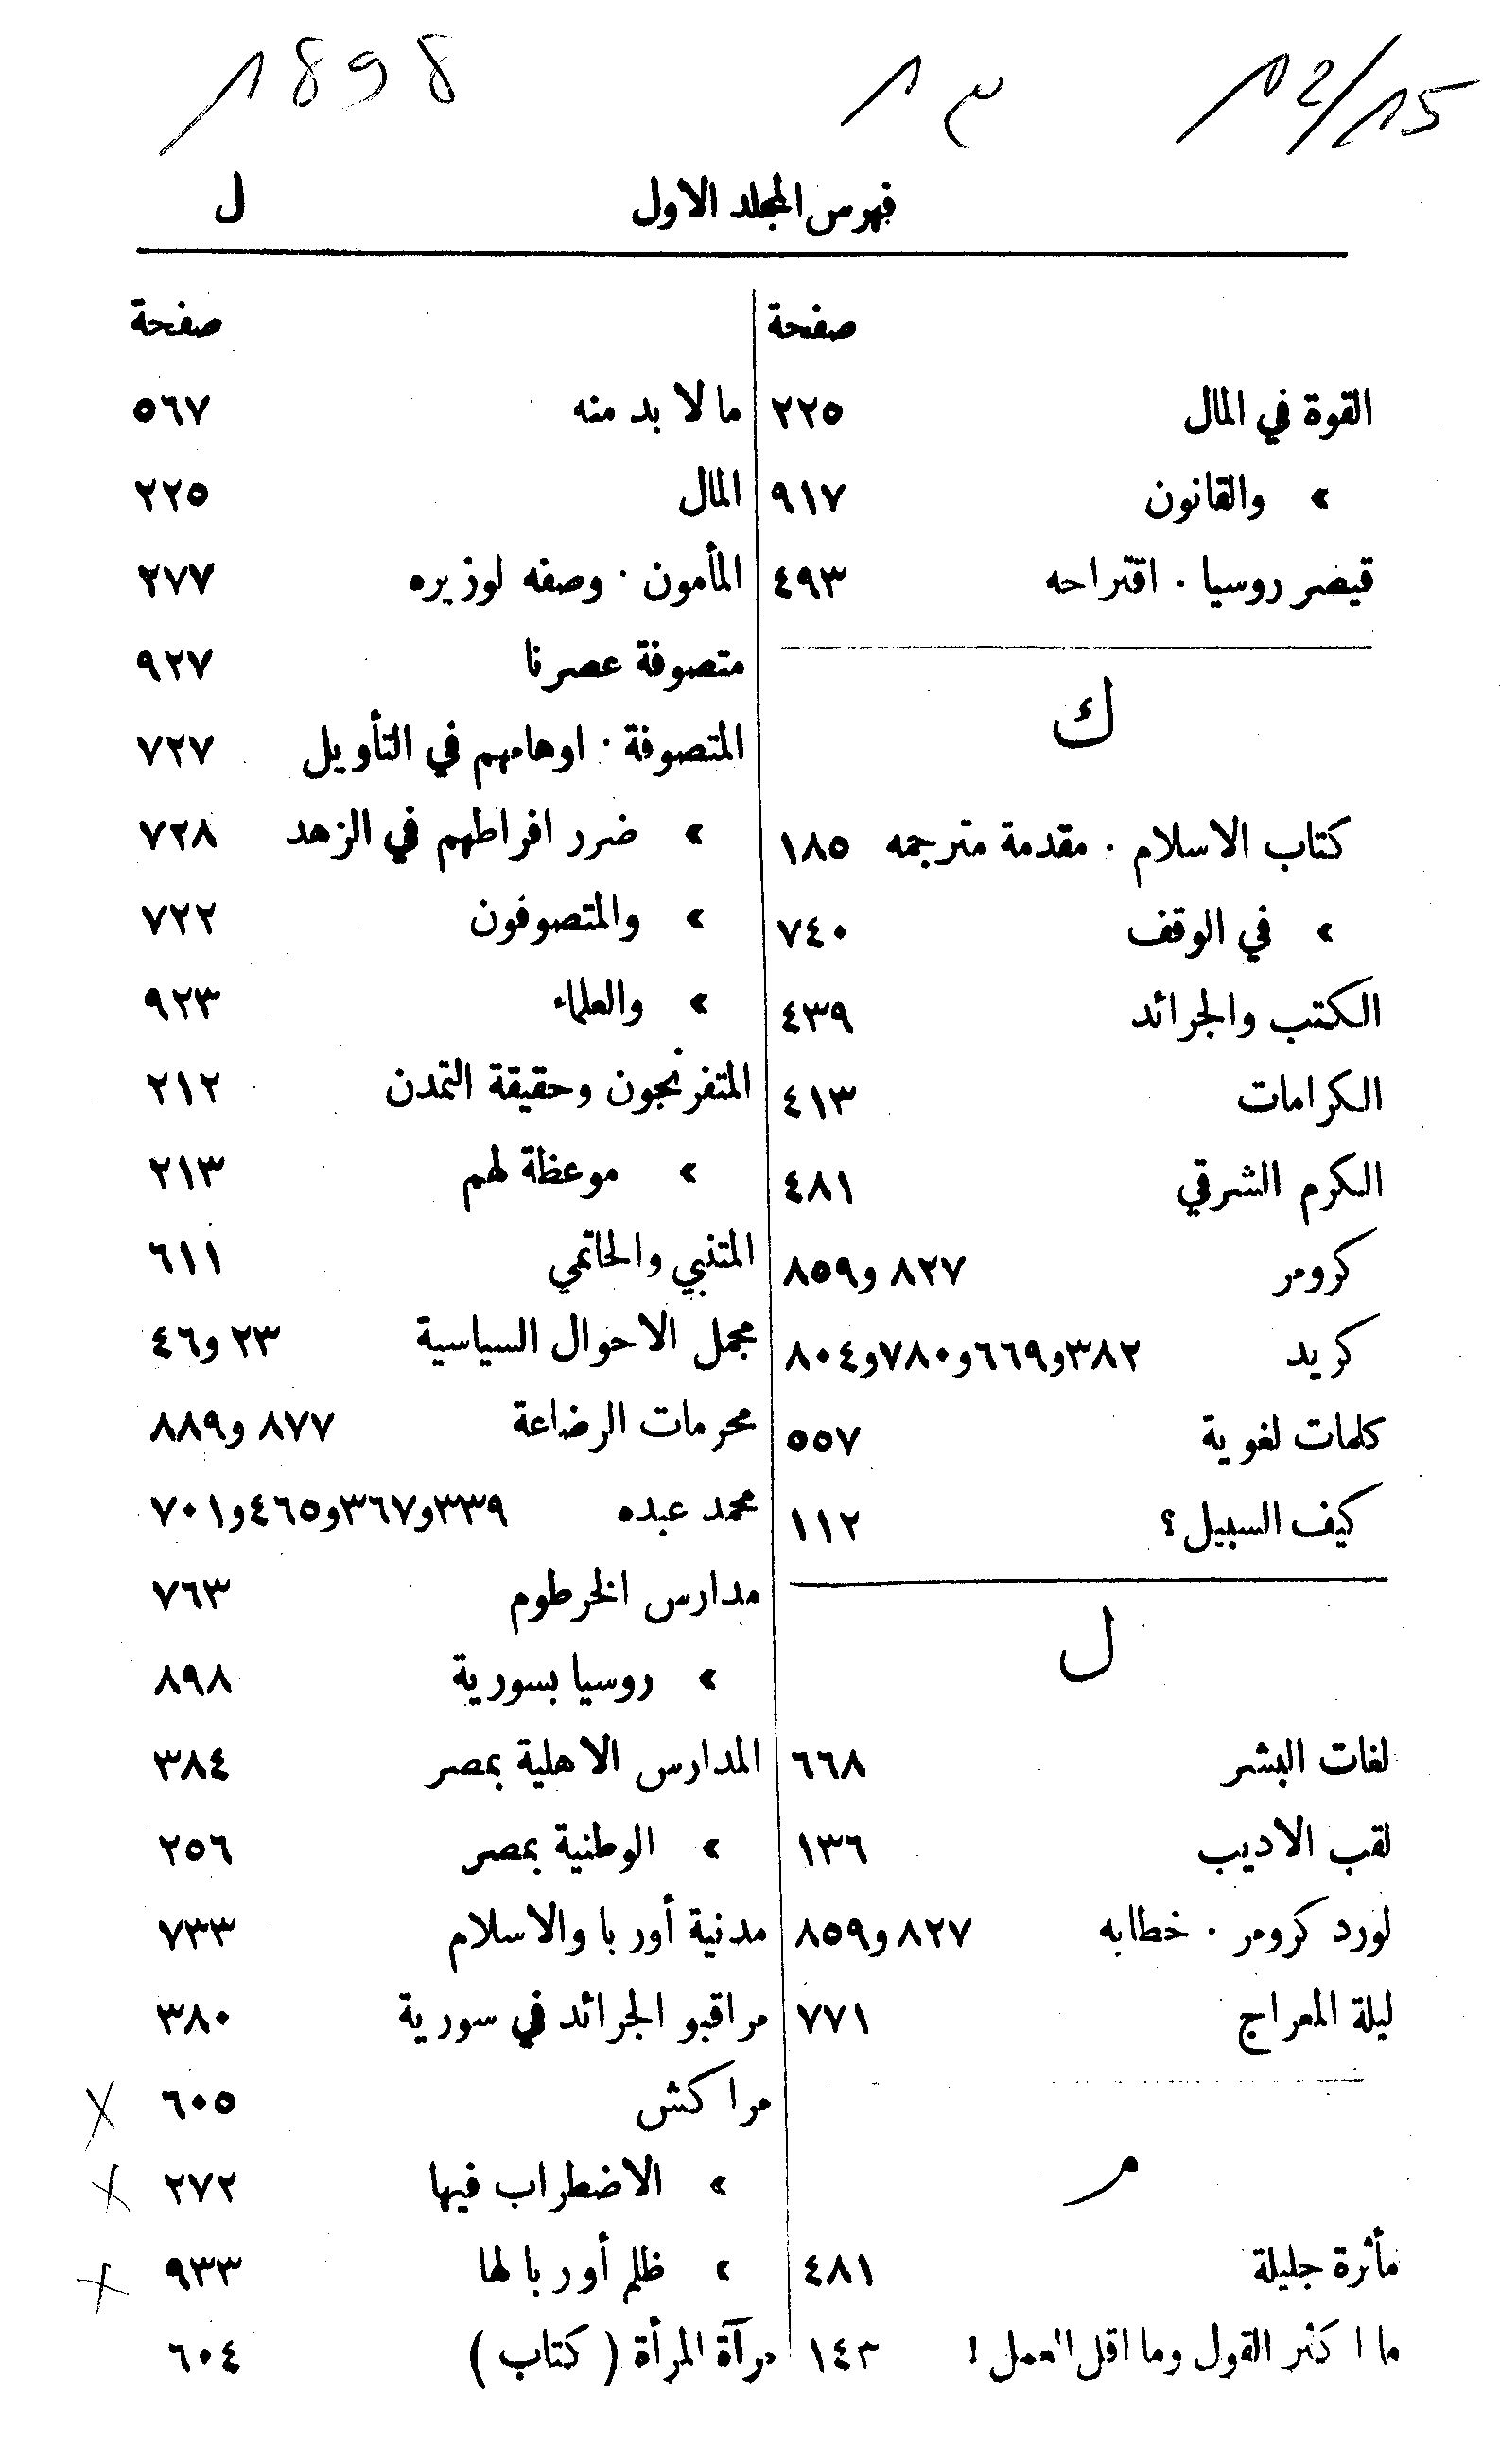 1898 13 12/15
فهرس المجلد الاول ل
صفحة
القوة في المال ٢٢٥
» والقانون ٩١٧
قيصر روسيا . اقتراحه ٤٩٣
ك
كتاب الاسلام . مقدمة مترجمه ١٨٥
» في الوقف ٧٤٠
الكتب والجرائد ٤٣٩
الكرامات ٤١٣
الكرم الشرقي ٤٨١
كرومر ٨٢٧ و٨٥٩
كريد ٣٨٢و٦٦٩و٧٨٠و٨٠٤
كلمات لغوية ٥٥٧
كيف السبيل؟ ١١٢
ل
لغات البشر ٦٦٨
لقب الاديب ١٣٦
لورد كرومر . خطابه ٨٢٧ و٨٥٩
ليلة المعراج ٧٧١
م
مأثرة جليلة ٤٨١
ما اكثر القول وما اقل العمل! ١٤٣
صفحة
ما لا بد منه ٥٦٧
المال ٢٢٥
المأمون . وصفه لوزيره ٢٧٧
متصوفة عصرنا ٩٢٧
المتصوفة . اوهامهم في التأويل ٧٢٧
» ضرر افراطهم في الزهد ٧٢٨
» والمتصوفون ٧٢٢
» والعلماء ٩٢٣
المتفرنجون وحقيقة التمدن ٢١٢
» موعظة لهم ٢١٣
المتنبي والحاتمي ٦١١
مجمل الاحوال السياسية ٢٣ و٤٦
محرمات الرضاعة ٨٧٧ و٨٨٩
محمد عبده ٣٣٩و٣٦٧و٤٦٥و٧٠١
مدارس الخرطوم ٧٦٣
» روسيا بسورية ٨٩٨
المدارس الاهلية بمصر ٣٨٤
» الوطنية بمصر ٢٥٦
مدنية أوربا والاسلام ٧٣٣
مراقبو الجرائد في سورية ٣٨٠
مراكش ٦٠٥
» الاضطراب فيها ٢٧٢
» ظلم أوربا لها ٩٣٣
مرآة المرأة ( كتاب ) ٦٠٤